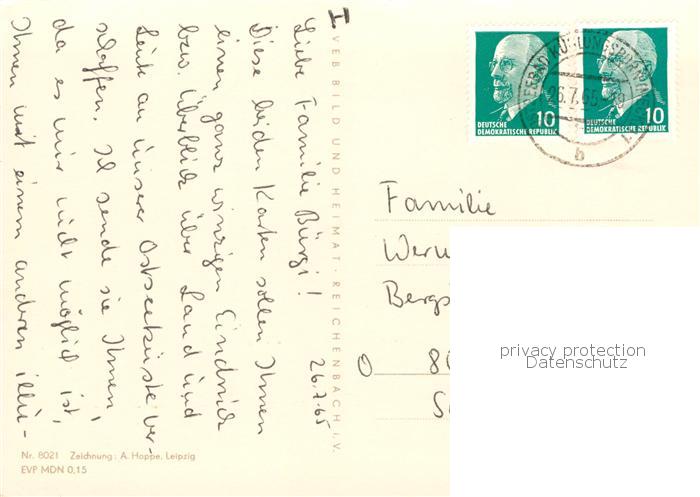 I
26.7.65
Liebe Familie Bürgi!
Diese beiden Karten sollen Ihnen
einen ganz winzigen Eindruck
bzw. Überblick über Land und
Leute an unserer Ostseeküste ver-
schaffen. Ich sende sie Ihnen,
da es mir nicht möglich ist,
Ihnen mit einem anderen illu-
VEB BILD UND HEIMAT · REICHENBACH i.V.
Nr. 8021 Zeichnung: A. Hoppe, Leipzig
EVP MDN 0,15
10
DEUTSCHE
DEMOKRATISCHE REPUBLIK
10
DEUTSCHE
DEMOKRATISCHE REPUBLIK
26.7.65
b
Familie
Wern
Bergs
privacy protection
Datenschutz